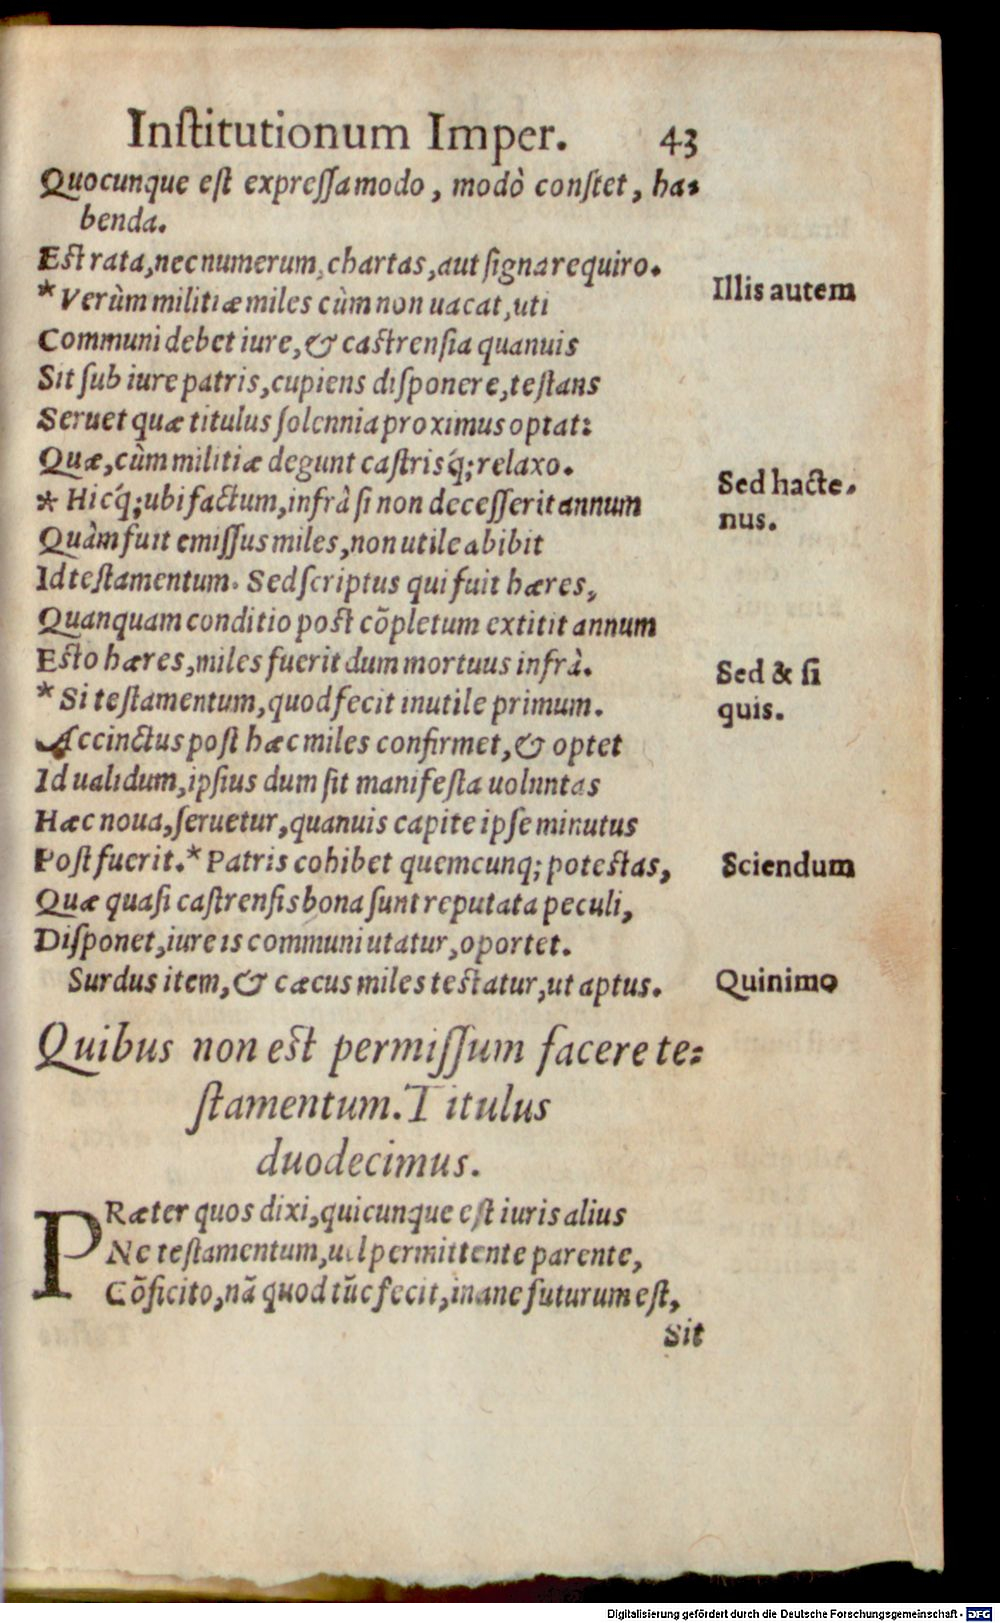 Inſtitutionum Imper. 43
Quocunque eſt expreſſa modo, modò conſtet, ha-
benda.
Eſt rata, nec numerum, chartas, aut ſigna requiro.
* Verùm militiæ miles cùm non uacat, uti
Illis autem
Communi debet iure, & caſtrenſia quanuis
Sit ſub iure patris, cupiens diſponere, teſtans
Seruet quæ titulus ſolennia proximus optat:
Quæ, cùm militiæ degunt caſtrisq́;, relaxo.
* Hicq́; ubi factum, infrà ſi non deceſſerit annum
Sed hacte-
nus.
Quàm fuit emiſſus miles, non utile abibit
Id teſtamentum. Sed ſcriptus qui fuit hæres,
Quanquam conditio poſt cōpletum extitit annum
Eſto hæres, miles fuerit dum mortuus infrà.
Sed & ſi
quis.
* Si teſtamentum, quod fecit inutile primum.
Accinctus poſt hæc miles confirmet, & optet
Id ualidum, ipſius dum ſit manifeſta uoluntas
Hæc noua, ſeruetur, quanuis capite ipſe minutus
Poſt fuerit. * Patris cohibet quemcunq; poteſtas,
Sciendum
Quæ quaſi caſtrenſis bona ſunt reputata peculi,
Diſponet, iure is communi utatur, oportet.
Surdus item, & cæcus miles teſtatur, ut aptus.
Quinimo
Quibus non eſt permiſſum facere te-
ſtamentum. Titulus
duodecimus.
PRæter quos dixi, quicunque eſt iuris alius
Ne teſtamentum, uel permittente parente,
Cōficito, nā quod tūc fecit, inane futurum eſt,
Sit
Digitalisierung gefördert durch die Deutsche Forschungsgemeinschaft - DFG